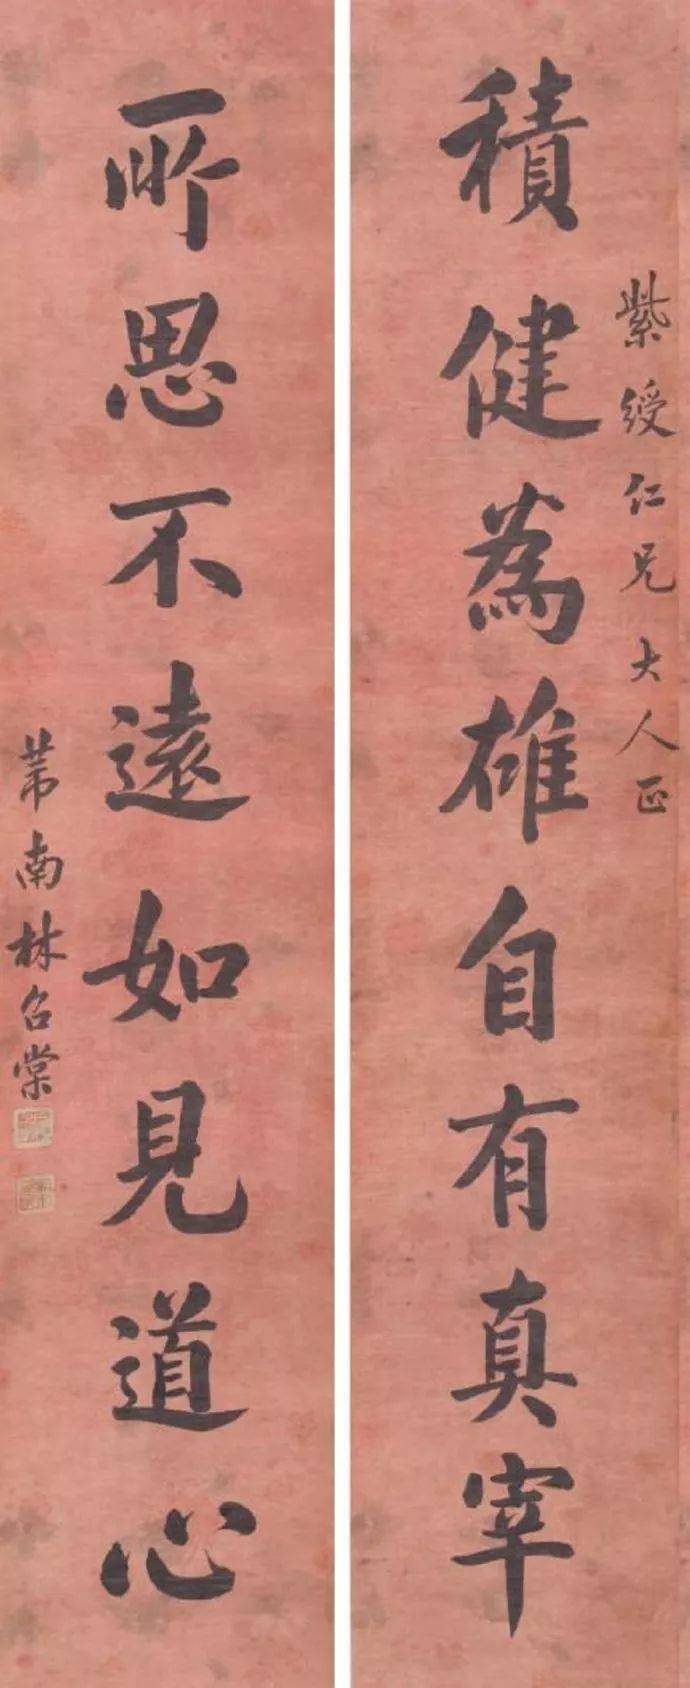 積健為雄自有真宰
紫綬仁兄大人正
所思不遠如見道心
芾南林召棠